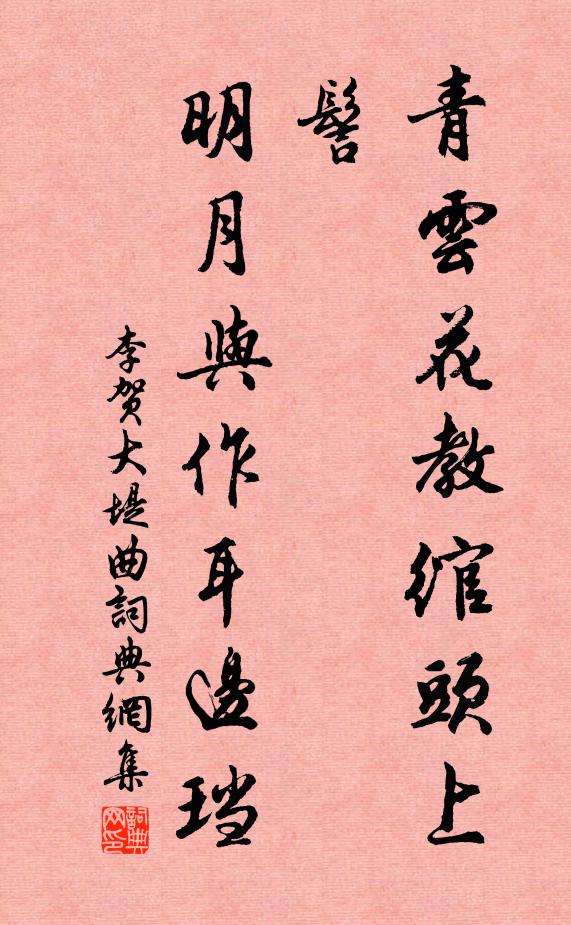 青雲花教綰頭上
髻
明月與作耳邊璫
李賀大堤曲詞典網集
詞典网印